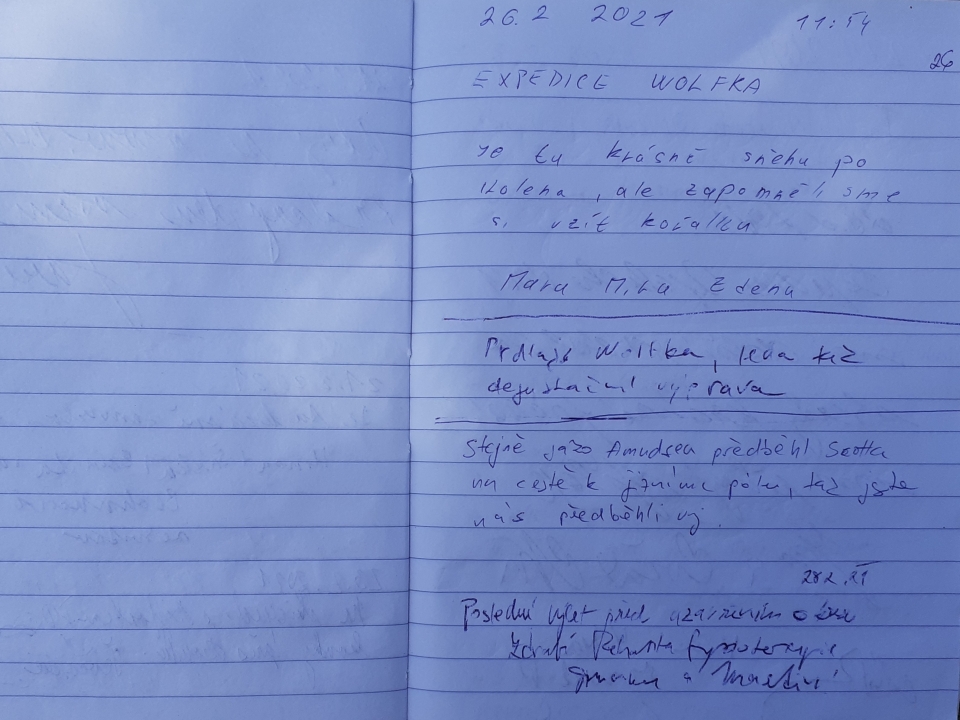 26.2 2021 11:54
26
EXPEDICE WOLFKA
Je tu krásně sněhu po
kolena, ale zapomněli sme
si vzít kořalku
Mara Mira Zdena
degustační výprava
Stejně jako Amudsen předběhl Scotta
na cestě k jižnímu pólu, tak jste
nás předběhli vy.
28.2.21
Poslední výlet před uzavřením okresu
Zdraví fyzioterapie
a Martin